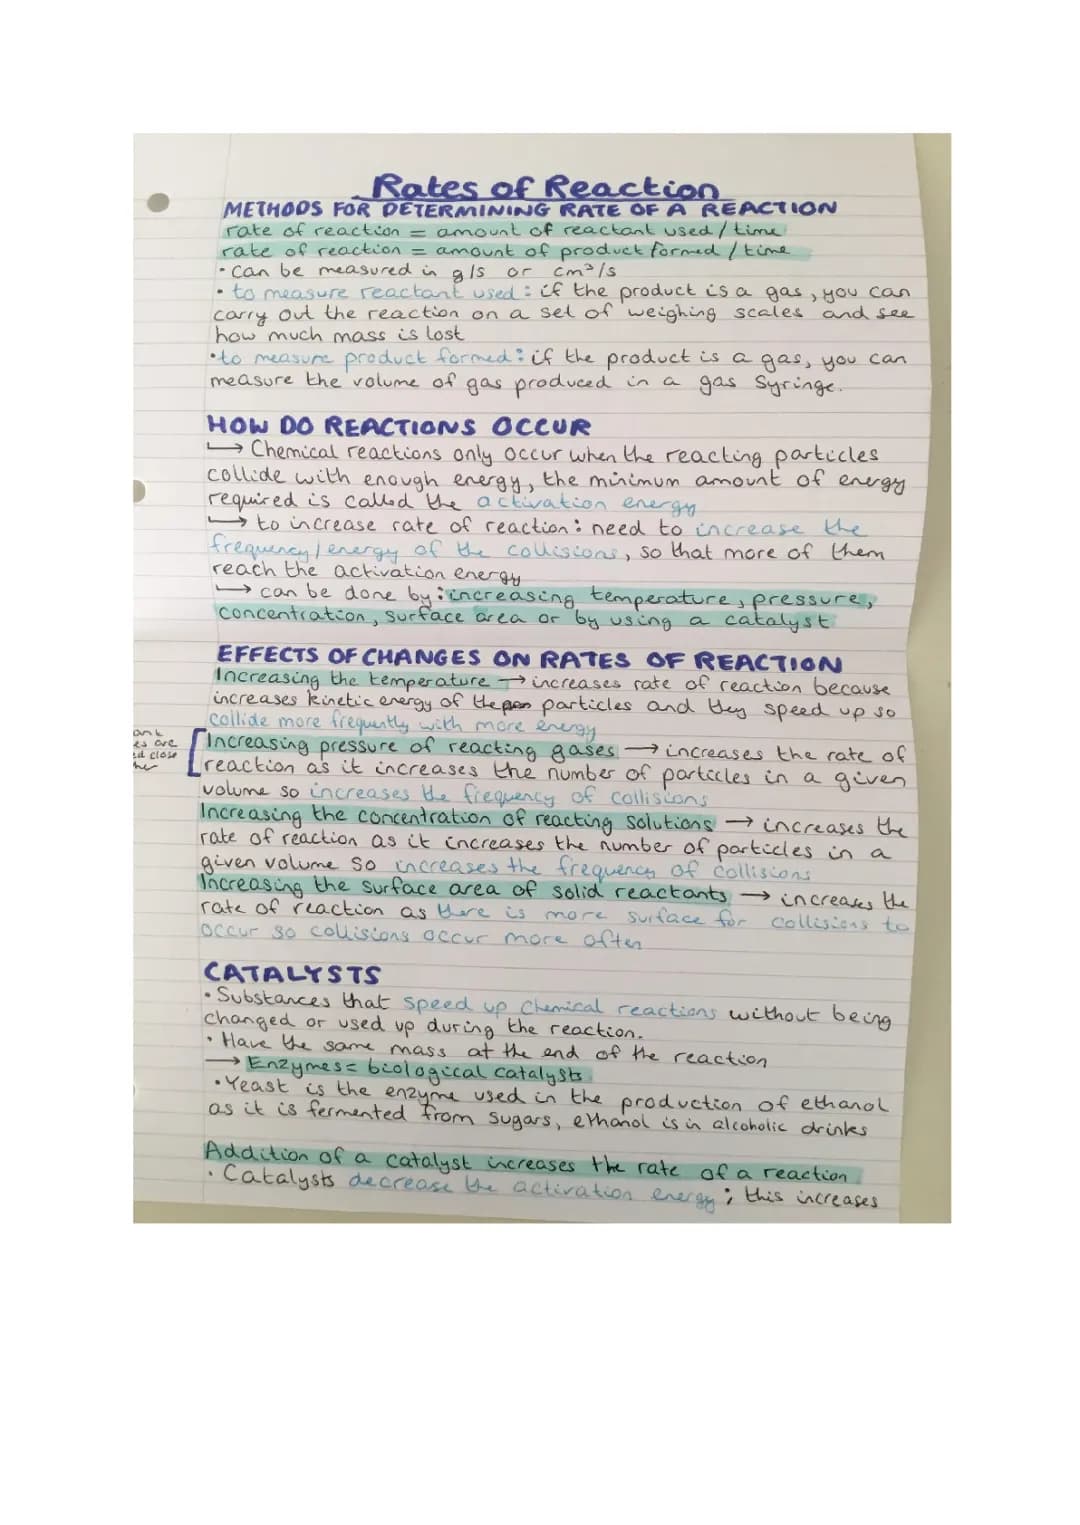 Rates of Reaction
METHODS FOR DETERMINING RATE OF A REACTION
rate of reaction = amount of reactant used / time
rate of reaction = amount of product formed / time
• can be measured in g/s or cm³/s
• to measure reactant used : if the product is a gas, you can
carry out the reaction on a set of weighing scales and see
how much mass is lost
• to measure product formed : if the product is a gas, you can
measure the volume of gas produced in a gas syringe.
HOW DO REACTIONS OCCUR
→ Chemical reactions only occur when the reacting particles
collide with enough energy, the minimum amount of energy
required is called the activation energy
→ to increase rate of reaction : need to increase the
frequency/energy of the collisions, so that more of them
reach the activation energy
→ can be done by : increasing temperature, pressure,
concentration, surface area or by using a catalyst
EFFECTS OF CHANGES ON RATES OF REACTION
Increasing the temperature → increases rate of reaction because
increases kinetic energy of the particles and they speed up so
collide more frequently with more energy
Increasing pressure of reacting gases → increases the rate of
reaction as it increases the number of particles in a given
volume so increases the frequency of collisions
Increasing the concentration of reacting solutions → increases the
rate of reaction as it increases the number of particles in a
given volume so increases the frequency of collisions
Increasing the surface area of solid reactants → increases the
rate of reaction as there is more surface for collisions to
occur so collisions occur more often
CATALYSTS
• Substances that speed up chemical reactions without being
changed or used up during the reaction.
• Have the same mass at the end of the reaction
→ Enzymes = biological catalysts
• Yeast is the enzyme used in the production of ethanol
as it is fermented from sugars, ethanol is in alcoholic drinks
Addition of a catalyst increases the rate of a reaction
• Catalysts decrease the activation energy ; this increases